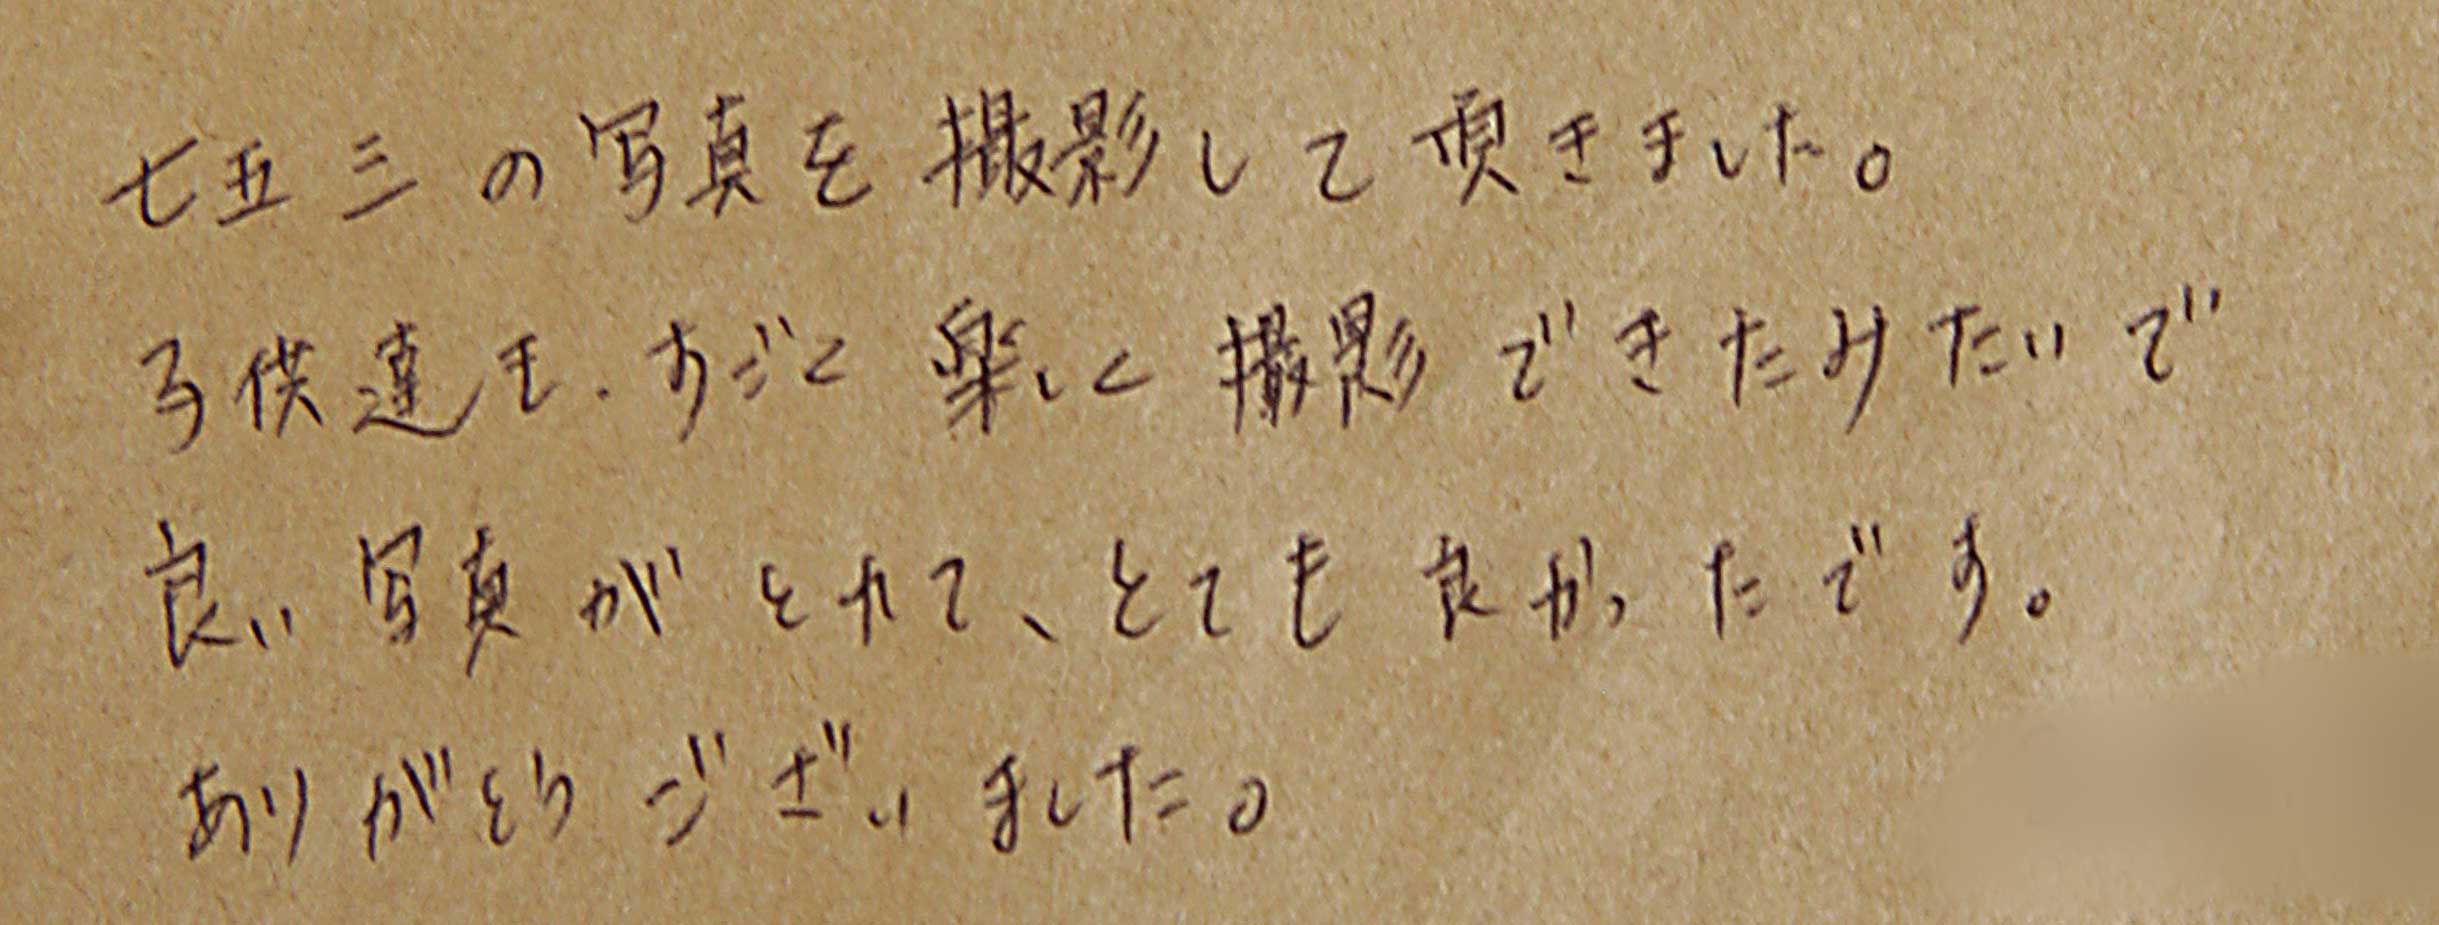 七五三の写真を撮影して頂きました。
子供達も、すごく楽しく撮影できたみたいで
良い写真がとれて、とても良かったです。
ありがとうございました。